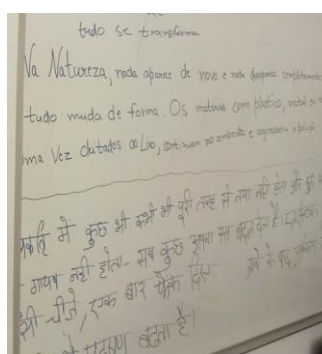 tudo se transforma
Na Natureza, nada aparece de novo e nada desaparece completamente
tudo muda de forma. Os materiais como plástico, metal
uma Vez chutados ao Lixo, continuam no ambiente e
में कुछ भी कभी भी पूरी तरह से नया नहीं होता और कुछ
गायब नहीं होता - सब कुछ अपना रूप बदल लेता है।
चीजें, एक बार फेंक दिए जाने के बाद,
बढ़ता है।